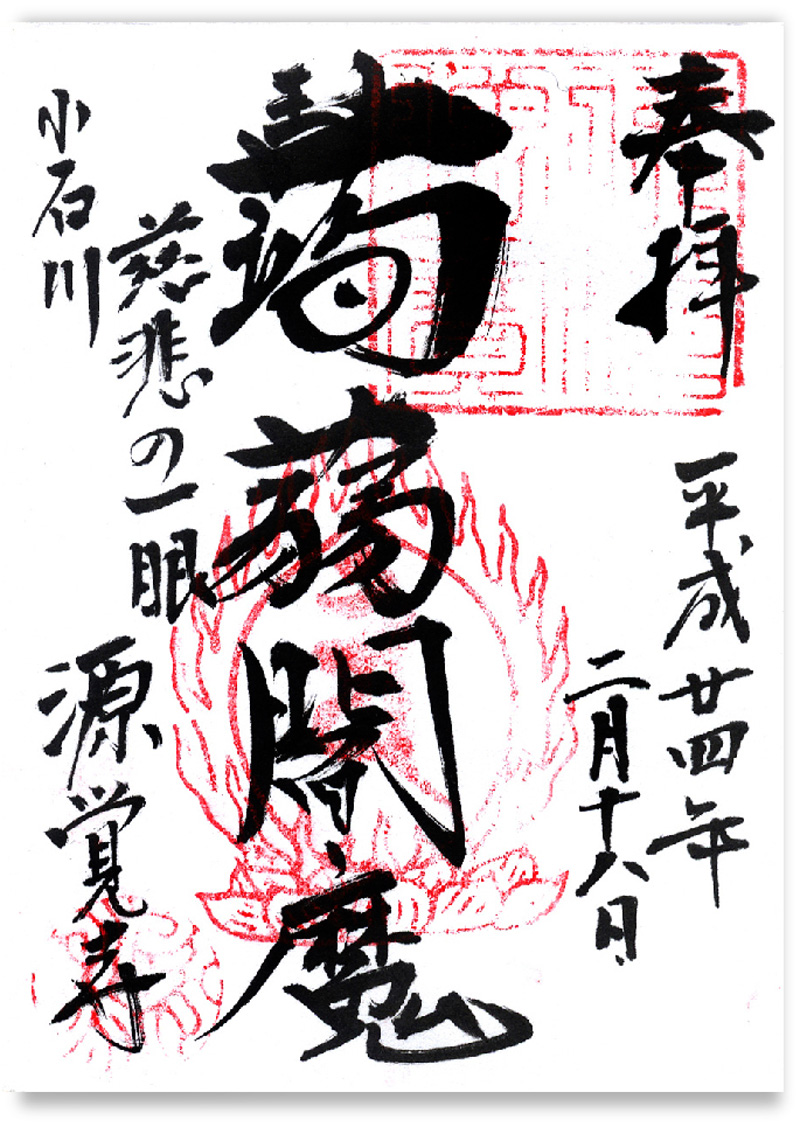 奉拝
平成廿四年
二月十八日
蒟蒻閻魔
慈悲の一眼
小石川
源覚寺